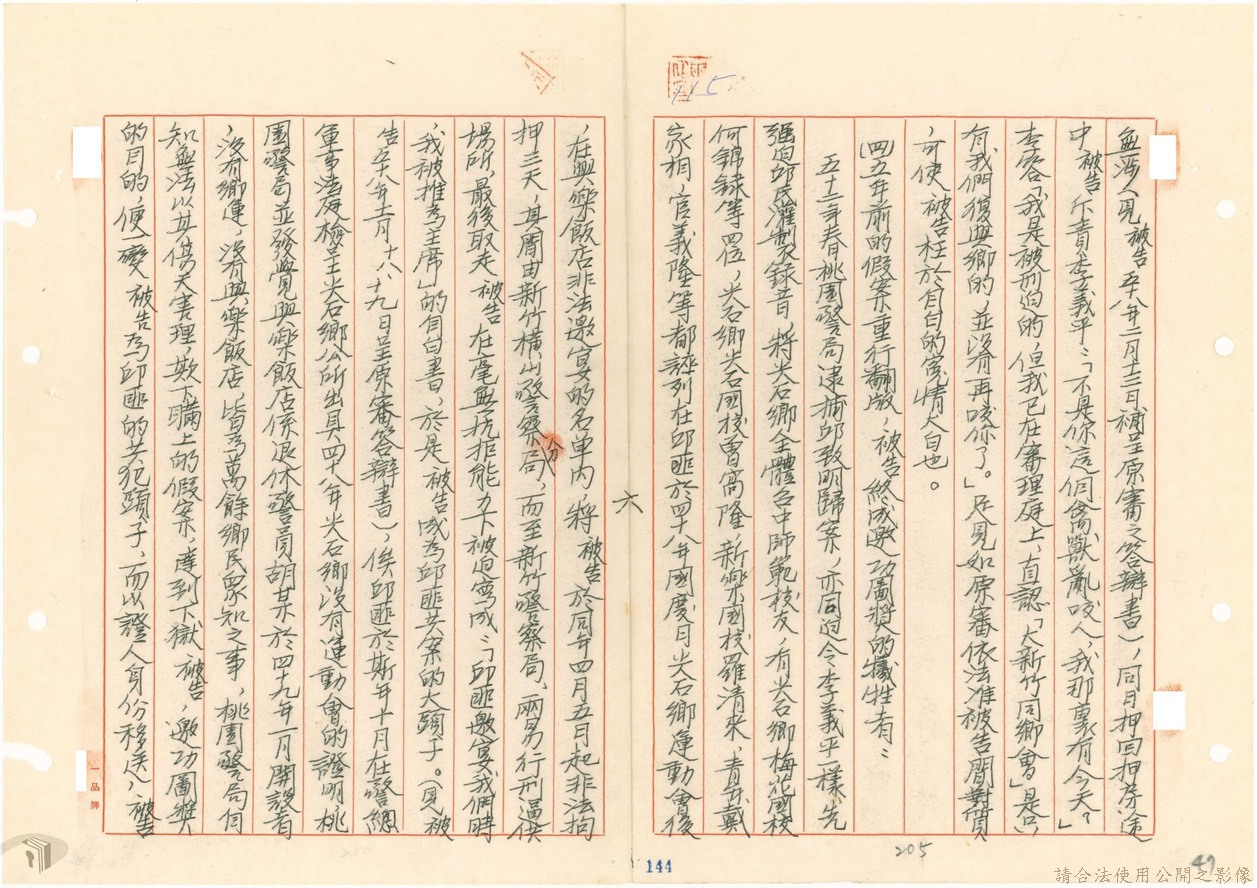 無涉(見被告五十八年二月十三日補呈原審之答辯書)，同月押回押房途
中被告斥責李義平：「不是你這個禽獸亂咬人，我那裏有今天？」
李答「我是被刑迫的，但我已在審理庭上，直認「大新竹同鄉會」是否
有我們復興鄉的，並沒有再咬你了。」足見如原審依法准被告開對質
，可使被告枉於自白的寃情大白也。
(四)五年前的假案重行翻版，被告終成邀功圖獎的犧牲者：
五十二年春桃園警局逮捕邱致明歸案，亦同迫令李義平一樣，先
强迫邱氏灌製錄音，將尖石鄉全體台中師範校友，有尖石鄉梅花國校
何錦錄等四位，尖石鄉尖石國校曾高隆，新樂國校羅清來，青年戴
家相，官義隆等都誣列在邱匪於四十八年國慶日尖石鄉運動會後
，在興樂飯店非法邀宴的名單內，將被告於同年四月五日起非法拘
押三天，其間由新竹橫山警察分局，而至新竹警察局，兩易行刑逼供
場所，最後取走被告在毫無抗拒能力下被迫寫成：「邱匪邀宴我們時
，我被推為主席」的自白書，於是被告成為邱匪共案的大頭子。(見被
告五十八年二月十八、十九日呈原審答辯書)，俟邱匪於斯年十月在警總
軍事法庭檢呈尖石鄉公所出具四十八年尖石鄉沒有運動會的證明，桃
園警局並發覺興樂飯店係退休警員胡某於四十九年一月開設者
，沒有鄉運，沒有興樂飯店，皆為萬餘鄉民衆知之事，桃園警局自
知無法以其傷天害理，欺下瞞上的假案，達到下獄被告，邀功圖獎
的目的，便一變被告為邱匪的共犯頭子，而以證人身份移送，被告
六
115
144
205
49
品牌
請合法使用公開之影像